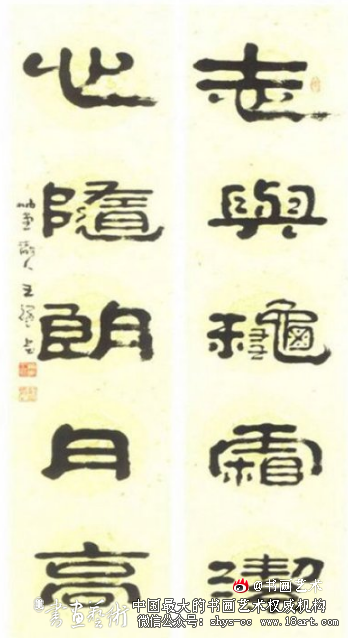 志與龝霜潔
心隨朗月高
书画艺术
書畫藝術
中国最大的书画艺术权威机构
微信公众号：shys-cc www.18art.com